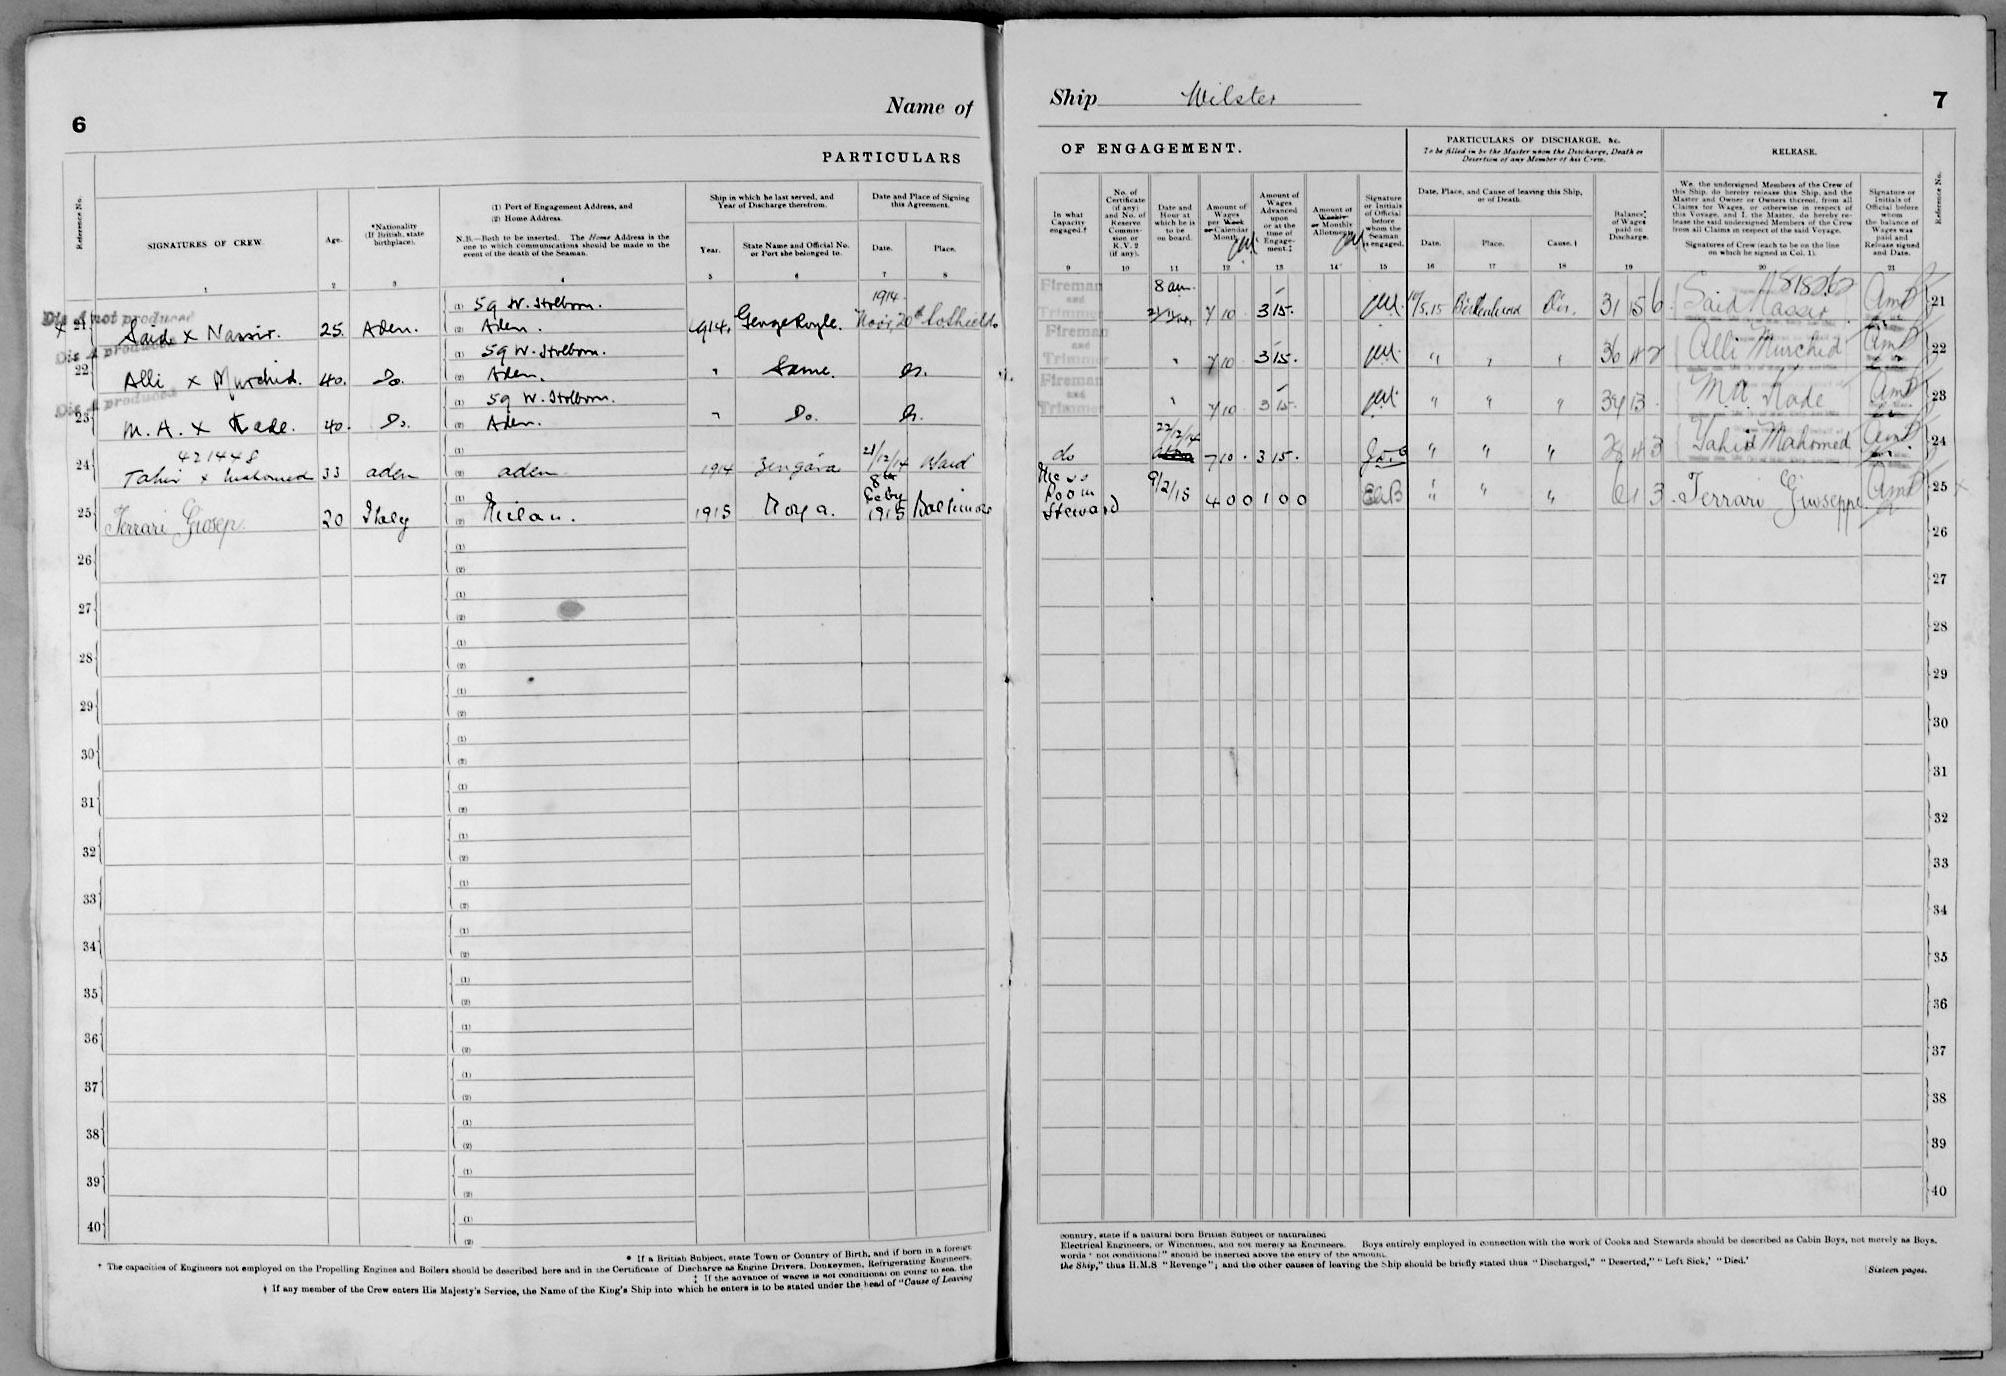 6
Name of
PARTICULARS
Reference No.
SIGNATURES OF CREW.
Age.
*Nationality
(If British, state
birthplace).
(1) Port of Engagement Address, and
(2) Home Address.
N.B.—Both to be inserted. The Home Address is the
one to which communications should be made in the
event of the death of the Seaman.
Ship in which he last served, and
Year of Discharge therefrom.
Year.
State Name and Official No.
or Port she belonged to.
Date and Place of Signing
this Agreement.
Date.
Place.
1 2 3 4 5 6 7 8
Dis A not produced
21 Said x Nassir. 25. Aden. (1) 59 W. Holborn. (2) Aden. 1914. George Royle. 1914 Novr. 20th So Shields
Dis A produced
22 Alli x Murchid. 40. Do. (1) 59 W. Holborn. (2) Aden. " Same. Do.
Dis A produced
23 M. A. x Kade. 40. Do. (1) 59 W. Holborn. (2) Aden. " Do. Do.
421448
24 Tahir x Mahomed 33 aden (1) (2) aden 1914 Zengara 21/12/14 Ward
25 Ferrari Giusep. 20 Italy (1) (2) Milan. 1915 8th Feby 1915 Baltimore
26 (1) (2)
27 (1) (2)
28 (1) (2)
29 (1) (2)
30 (1) (2)
31 (1) (2)
32 (1) (2)
33 (1) (2)
34 (1) (2)
35 (1) (2)
36 (1) (2)
37 (1) (2)
38 (1) (2)
39 (1) (2)
40 (1) (2)
* If a British Subject, state Town or Country of Birth, and if born in a foreign
† The capacities of Engineers not employed on the Propelling Engines and Boilers should be described here and in the Certificate of Discharge as Engine Drivers, Donkeymen, Refrigerating Engineers,
‡ If the advance of wages is not conditional on going to sea, the
† If any member of the Crew enters His Majesty's Service, the Name of the King's Ship into which he enters is to be stated under the head of "Cause of Leaving
Ship Wilster
7
OF ENGAGEMENT.
PARTICULARS OF DISCHARGE, &c.
To be filled in by the Master upon the Discharge, Death or
Desertion of any Member of his Crew.
RELEASE.
In what
Capacity
engaged.†
No. of
Certificate
(if any)
and No. of
Reserve
Commis-
sion or
R.V. 2
(if any).
Date and
Hour at
which he is
to be
on board.
Amount of
Wages
per Week
or Calendar
Month.
Amount of
Wages
Advanced
upon
or at the
time of
Engage-
ment.‡
Amount of
Weekly
or Monthly
Allotment.
Signature
or Initials
of Official
before
whom the
Seaman
is engaged.
Date, Place, and Cause of leaving this Ship,
or of Death.
Date.
Place.
Cause.†
Balance
of Wages
paid on
Discharge.
We, the undersigned Members of the Crew of
this Ship, do hereby release this Ship, and the
Master and Owner or Owners thereof, from all
Claims for Wages, or otherwise in respect of
this Voyage, and I, the Master, do hereby re-
lease the said undersigned Members of the Crew
from all Claims in respect of the said Voyage.
Signatures of Crew (each to be on the line
on which he signed in Col. 1).
Signature or
Initials of
Official before
whom
the balance of
Wages was
paid and
Release signed
and Date.
Reference No.
9 10 11 12 13 14 15 16 17 18 19 20 21
818262
Fireman and Trimmer 8 am. 7 10 3 15. Birkenhead Dis. 31 15 6 Said Nassir AmP 21
Fireman and Trimmer " 7 10 3 15. " " " 36 4 2 Alli Murchid AmP 22
Fireman and Trimmer " 7 10 3 15. " " " M.A. Kade AmP 23
do 22/12/14 7 10 . 3 15. " " " 28 4 3 Tahir Mahomed AmP 24
Mess Room Steward 9/2/15 4 0 0 1 0 0 " " " 6 1 3 Ferrari Giuseppe AmP 25
26
27
28
29
30
31
32
33
34
35
36
37
38
39
40
country, state if a natural born British Subject or naturalised
Electrical Engineers, or Winchmen, and not merely as Engineers. Boys entirely employed in connection with the work of Cooks and Stewards should be described as Cabin Boys, not merely as Boys.
words "not conditional" should be inserted above the entry of the amount.
the Ship," thus H.M.S "Revenge"; and the other causes of leaving the Ship should be briefly stated thus "Discharged," "Deserted," "Left Sick," "Died."
[Sixteen pages.